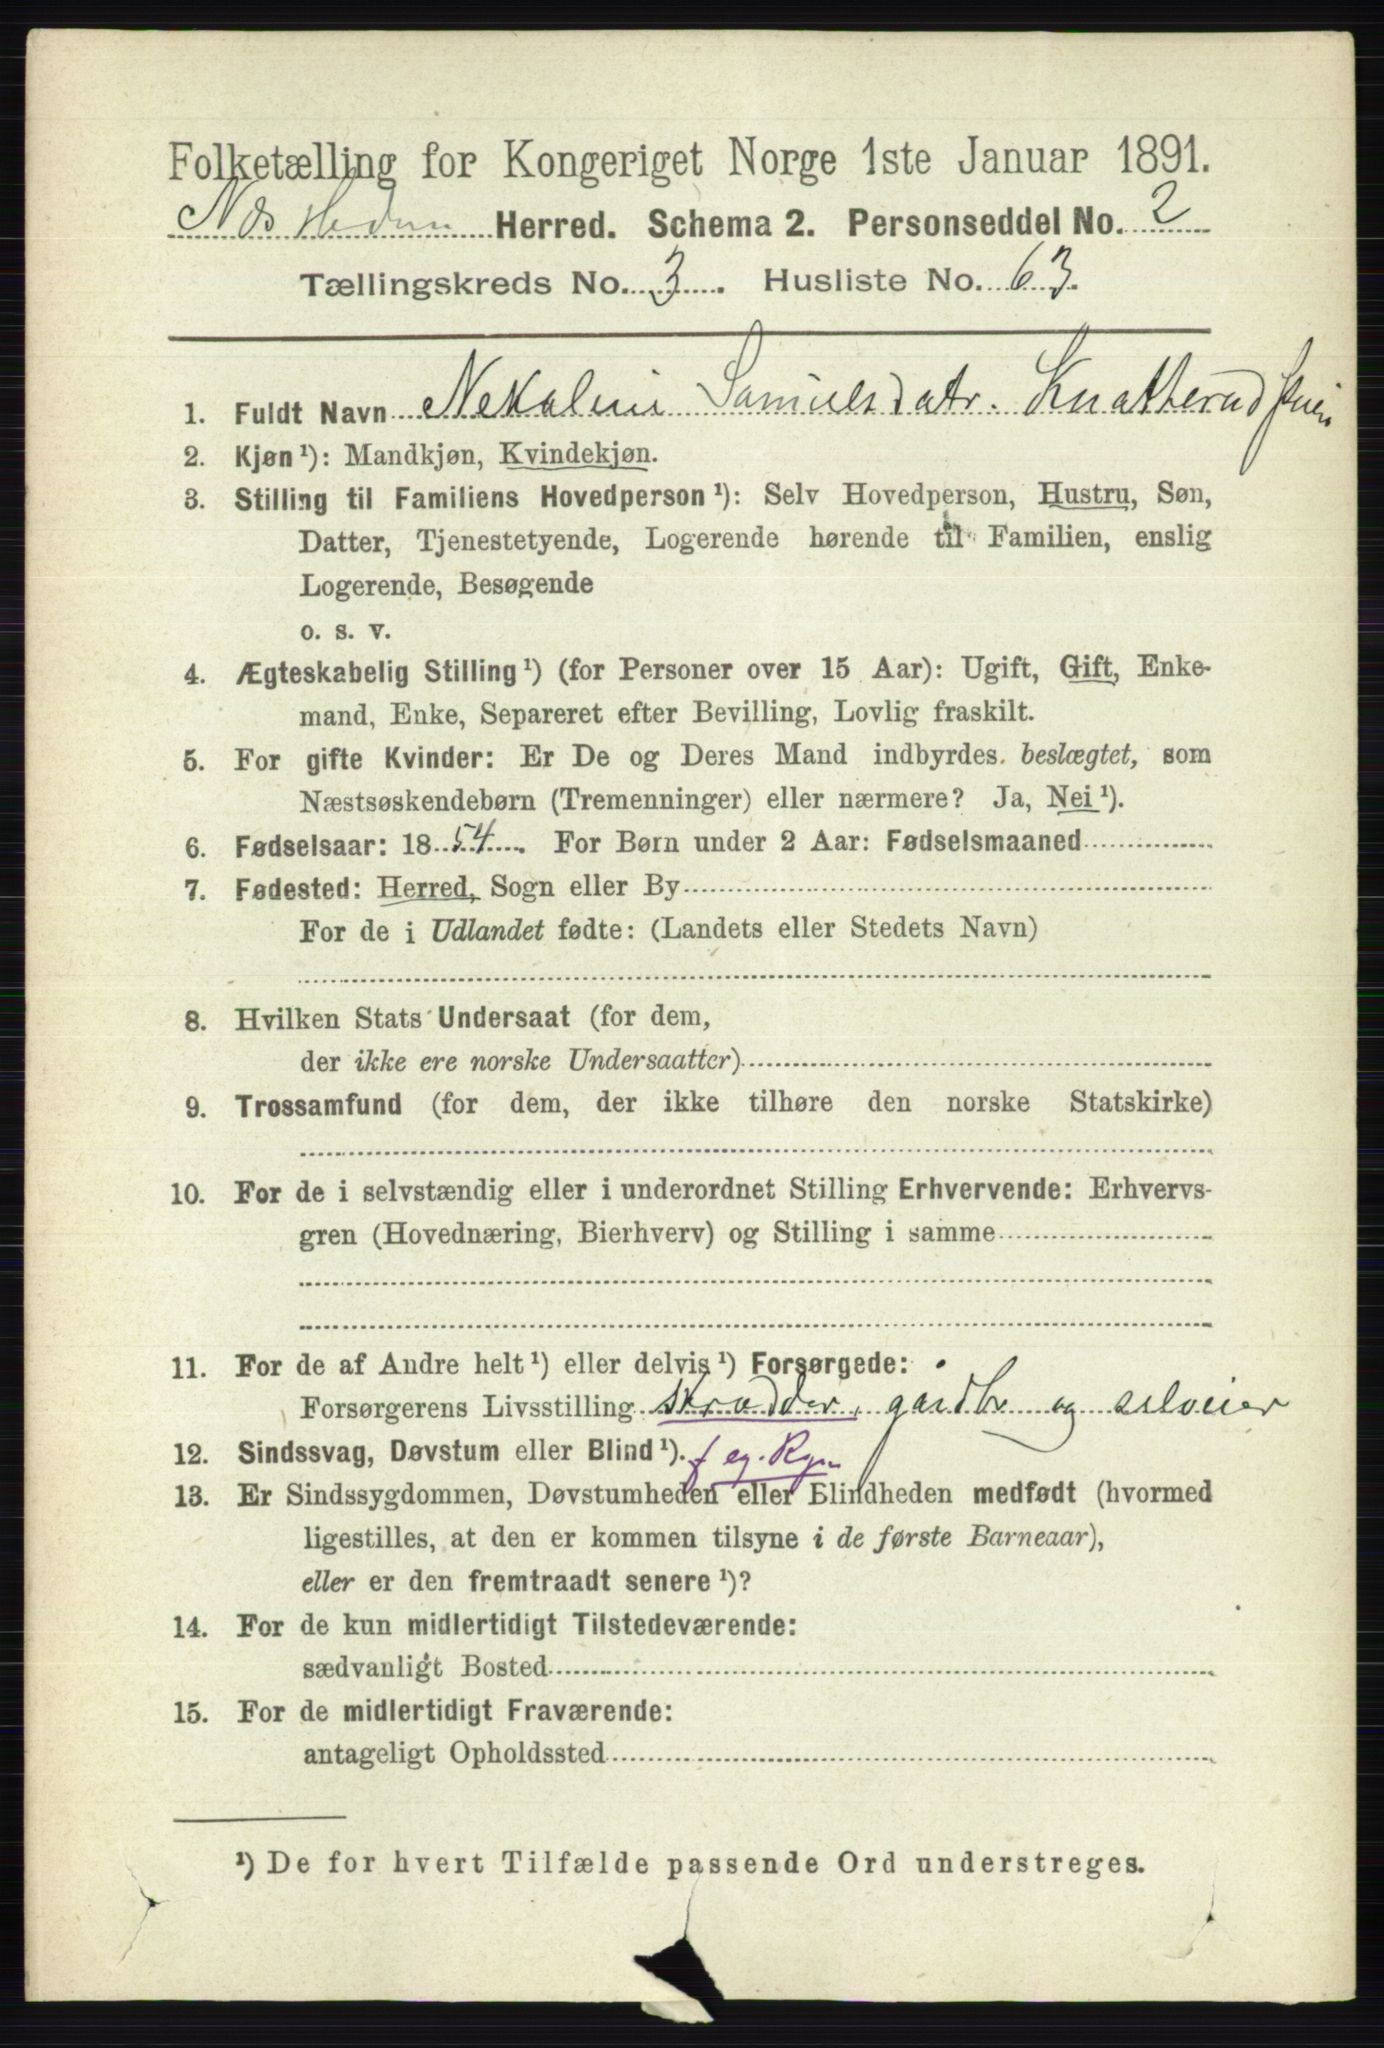 Folketælling for Kongeriget Norge 1ste Januar 1891.
Næs Hedm Herred. Schema 2. Personseddel No. 2
Tællingskreds No. 3. Husliste No. 63.
1. Fuldt Navn Nekoline Samuelsdatr. Knatterud
2. Kjøn ¹): Mandkjøn, Kvindekjøn.
3. Stilling til Familiens Hovedperson ¹): Selv Hovedperson, Hustru, Søn,
Datter, Tjenestetyende, Logerende hørende til Familien, enslig
Logerende, Besøgende
o. s. v.
4. Ægteskabelig Stilling ¹) (for Personer over 15 Aar): Ugift, Gift, Enke-
mand, Enke, Separeret efter Bevilling, Lovlig fraskilt.
5. For gifte Kvinder: Er De og Deres Mand indbyrdes beslægtet, som
Næstsøskendebørn (Tremenninger) eller nærmere? Ja, Nei ¹).
6. Fødselsaar: 1854. For Børn under 2 Aar: Fødselsmaaned
7. Fødested: Herred, Sogn eller By
For de i Udlandet fødte: (Landets eller Stedets Navn)
8. Hvilken Stats Undersaat (for dem,
der ikke ere norske Undersaatter)
9. Trossamfund (for dem, der ikke tilhøre den norske Statskirke)
10. For de i selvstændig eller i underordnet Stilling Erhvervende: Erhvervs-
gren (Hovednæring, Bierhverv) og Stilling i samme
11. For de af Andre helt ¹) eller delvis ¹) Forsørgede:
Forsørgerens Livsstilling skrædder, gardbr og selveier
12. Sindssvag, Døvstum eller Blind ¹). f eg. Rgn
13. Er Sindssygdommen, Døvstumheden eller Blindheden medfødt (hvormed
ligestilles, at den er kommen tilsyne i de første Barneaar),
eller er den fremtraadt senere ¹)?
14. For de kun midlertidigt Tilstedeværende:
sædvanligt Bosted
15. For de midlertidigt Fraværende:
antageligt Opholdssted
¹) De for hvert Tilfælde passende Ord understreges.